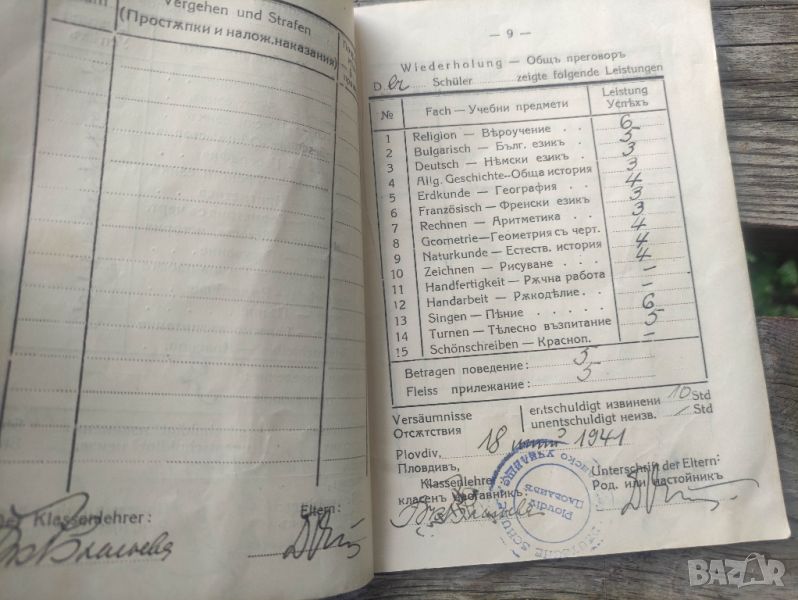 Vergehen und Strafen
(Простѫпки и налож.наказания)
Klassenlehrer:
Eltern:
— 9 —
Wiederholung — Общъ преговоръ
D er Schüler zeigte folgende Leistungen
№ Fach — Учебни предмети Leistung Успѣхъ
1 Religion — Вѣроучение . . 6
2 Bulgarisch — Бълг. езикъ . 5
3 Deutsch — Нѣмски езикъ . 3
4 Allg. Geschichte-Обща история 3
5 Erdkunde — География . . . 4
6 Französisch — Френски езикъ 3
7 Rechnen — Аритметика . . 3
8 Geometrie—Геометрия съ черт. 4
9 Naturkunde — Естеств. история 4
10 Zeichnen — Рисуване . . . 4
11 Handfertigkeit — Рѫчна работа –
12 Handarbeit — Рѫкодѣлие . . –
13 Singen — Пѣние . . . . . 6
14 Turnen — Тѣлесно възпитание 5
15 Schönschreiben — Краснoп. –
Betragen поведение: 5
Fleiss прилежание: 5
Versäumnisse
Отсѫтствия
entschuldigt извинени 10 Std
unentschuldigt неизв. – Std
Plovdiv, 18 юний 1941
Пловдивъ,
Klassenlehrer
класенъ наставникъ
Unterschrift der Eltern:
Род. или настойникъ
Plovdiv
Пловдивъ
BAZAR